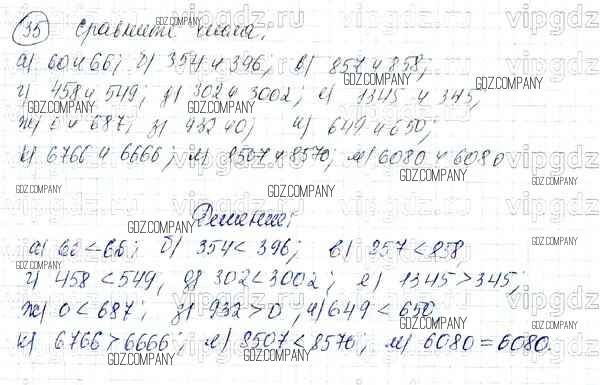 35 Сравните числа.
а) 60 и 66; б) 354 и 396; в) 857 и 858;
г) 458 и 549; д) 302 и 3002; е) 1345 и 345;
ж) 0 и 687; з) 932 и 0; и) 649 и 650;
к) 6766 и 6666; л) 8507 и 8570; м) 6080 и 6080
Решение:
а) 60 < 66; б) 354 < 396; в) 857 < 858
г) 458 < 549; д) 302 < 3002; е) 1345 > 345;
ж) 0 < 687; з) 932 > 0; и) 649 < 650
к) 6766 > 6666; л) 8507 < 8570; м) 6080 = 6080.